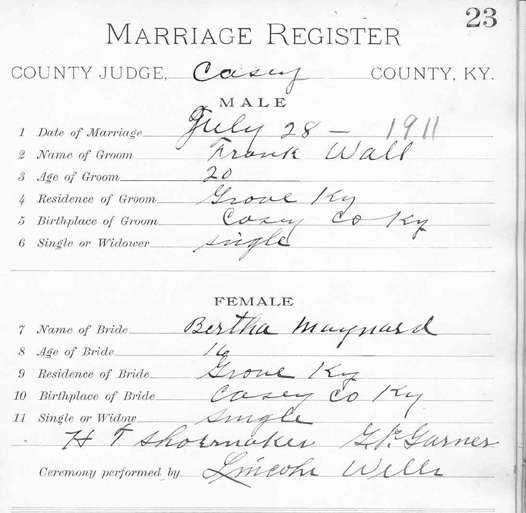 23
MARRIAGE REGISTER
COUNTY JUDGE, Casey COUNTY, KY.
MALE
1 Date of Marriage July 28 - 1911
2 Name of Groom Frank Wall
3 Age of Groom 20
4 Residence of Groom Grove Ky
5 Birthplace of Groom Casey Co Ky
6 Single or Widower single
FEMALE
7 Name of Bride Bertha Maynard
8 Age of Bride 16
9 Residence of Bride Grove Ky
10 Birthplace of Bride Casey Co Ky
11 Single or Widow single
H T Shoemaker G.P. Garner
Ceremony performed by Lincoln Wells